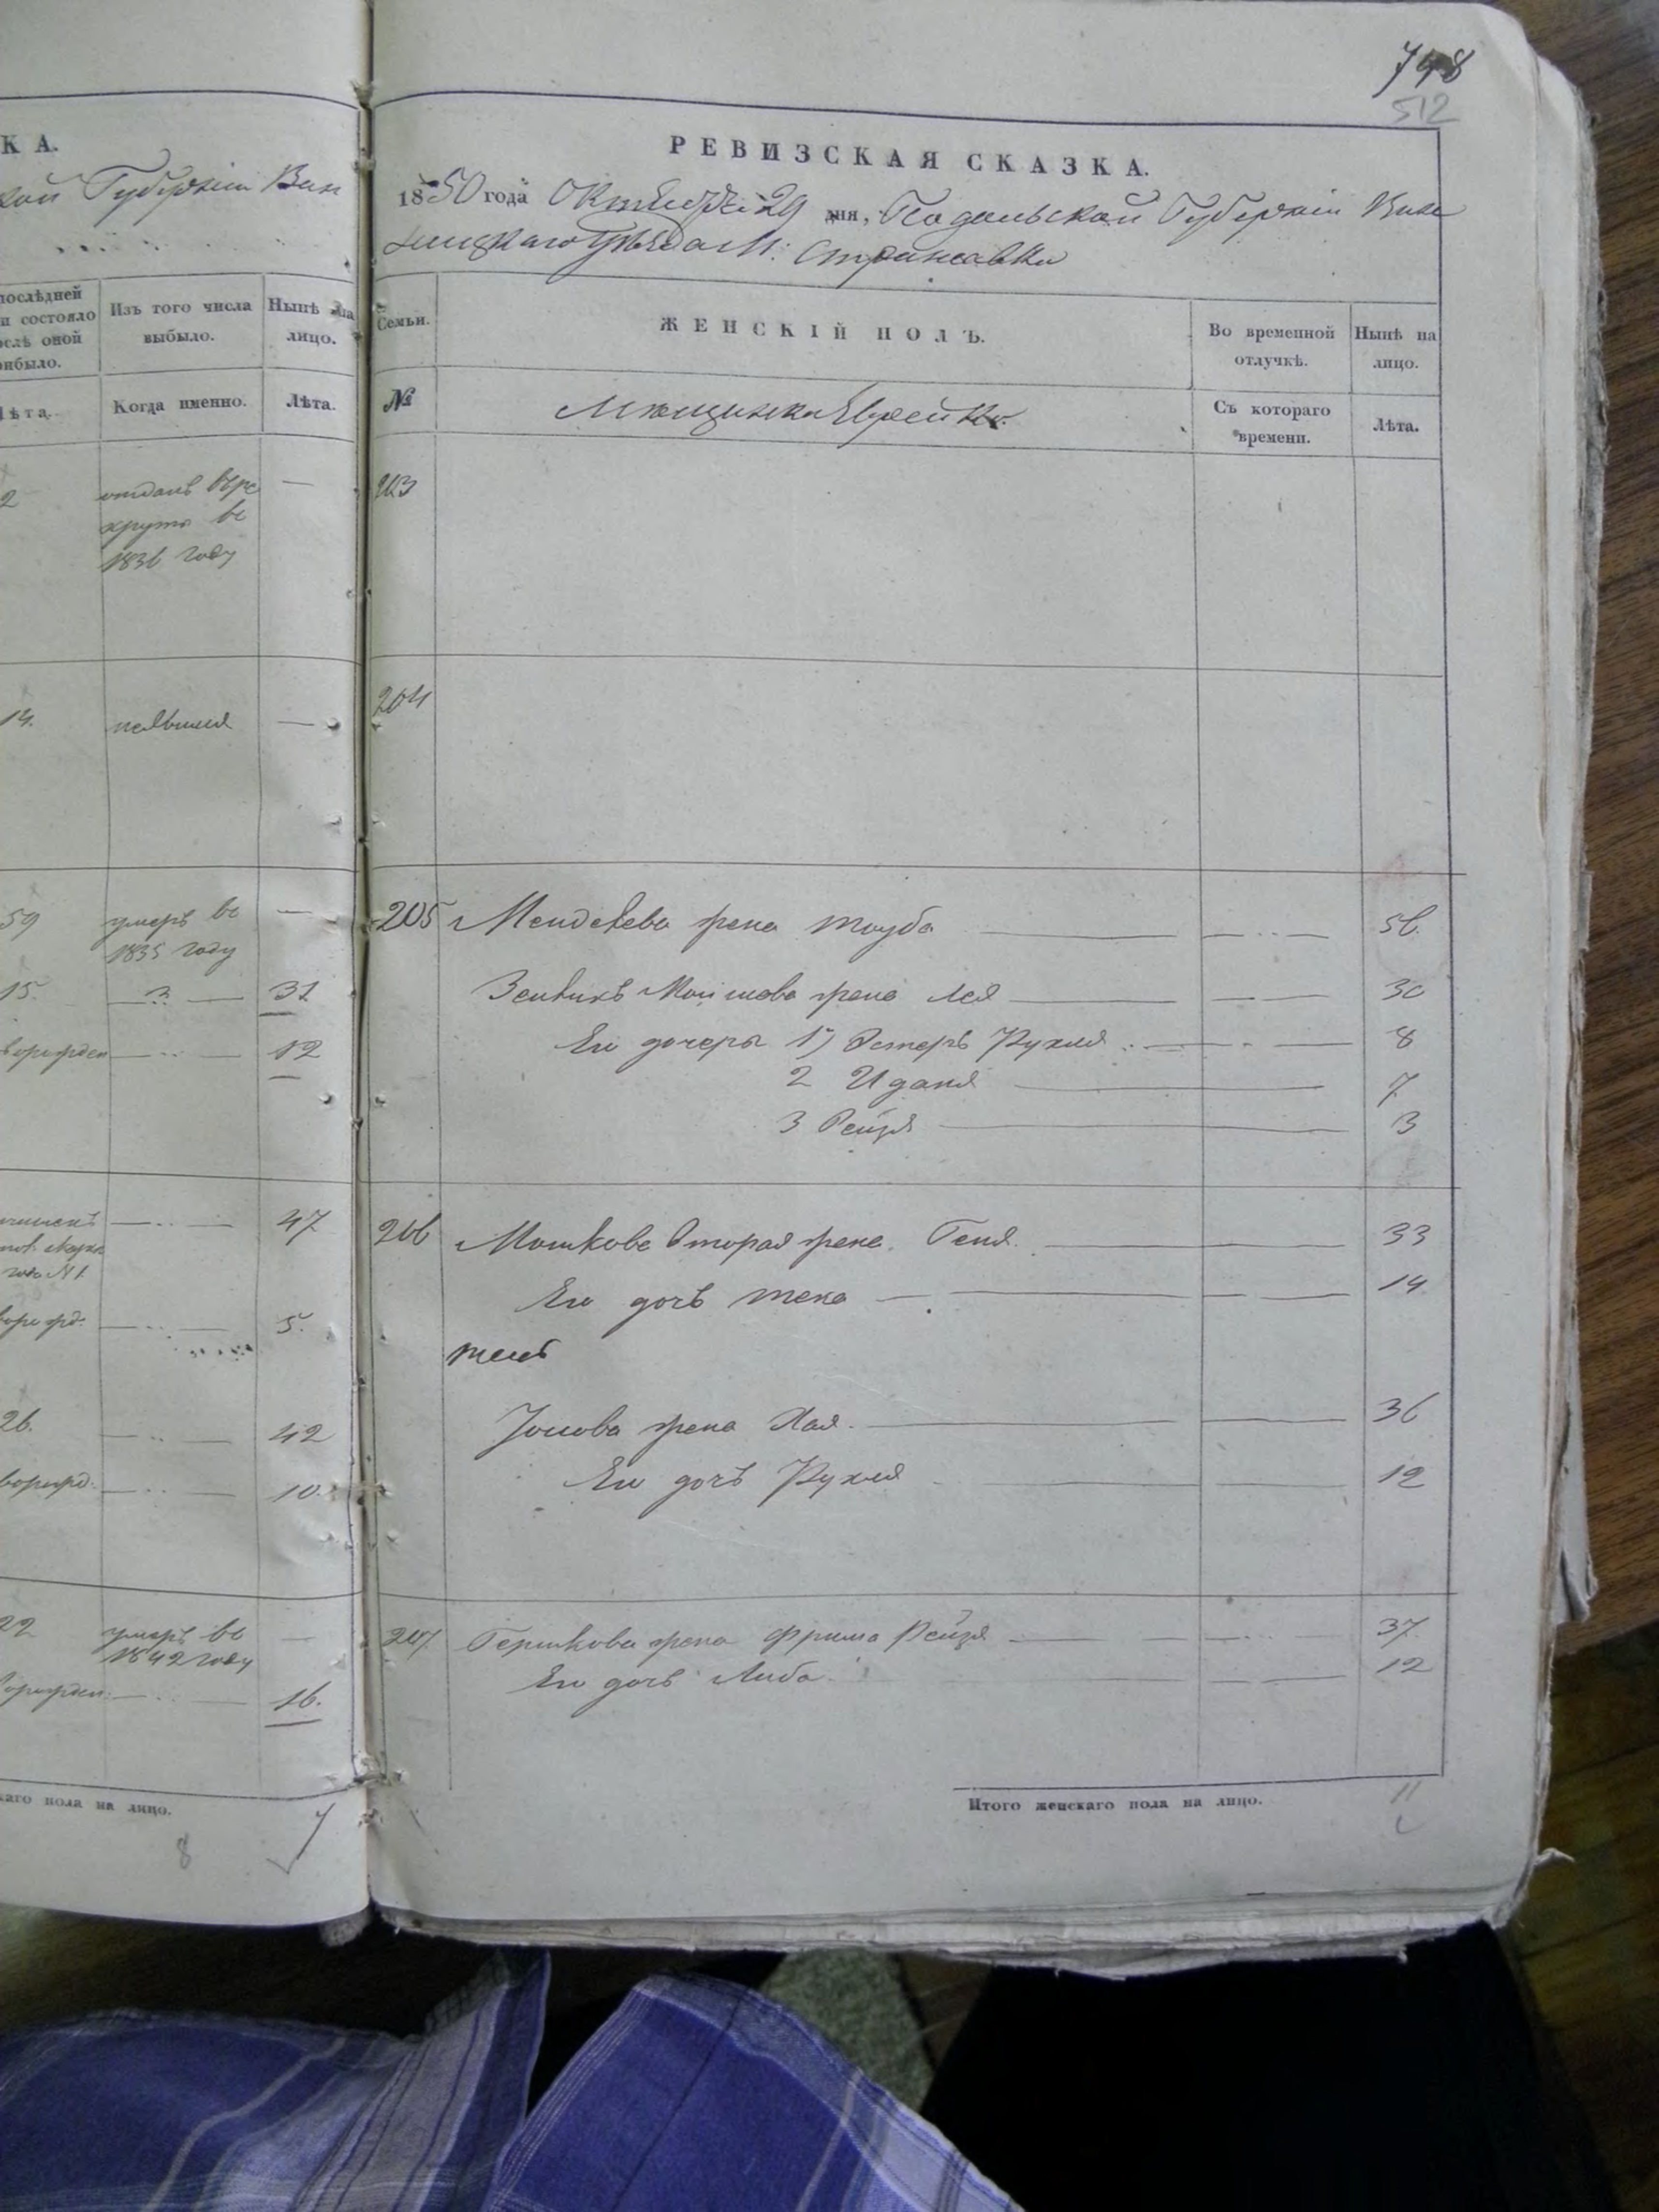 748
512
КА.
Губерніи Вин
послѣдней
состояло
оной
прибыло.
Лѣта.
Изъ того числа
выбыло.
Когда именно.
Нынѣ на
лицо.
Лѣта.
2 отданъ въ ре
круты въ
1836 году —
14. —
59 умеръ въ —
1835 году
15. — 31
— 12
47
5.
26. 42
10.
22 умеръ въ —
1842 году
16.
пола на лицо.
8 7
РЕВИЗСКАЯ СКАЗКА.
1850 года Октября 29 дня, Подольской Губерніи Вин
ницкаго Уѣзда М: Стрижавки
Семьи.
ЖЕНСКІЙ ПОЛЪ.
Во временной
отлучкѣ.
Нынѣ на
лицо.
№
Мѣщанки Еврейки
Съ котораго
времени.
Лѣта.
203
204
205 Менделева жена Тауба 56
Зейликъ Мошкова жена Лея 30
Его дочеры 1) Эстеръ Рухля 8
2 Иданя 7
3 Рейзя 3
206 Мошкова вторая жена Геня 33
Его дочь 14
Хая 36
Его дочь Рухля 12
207 Гершкова жена Фрима Рейзя 37
Его дочь Либа 12
Итого женскаго пола на лицо.
11